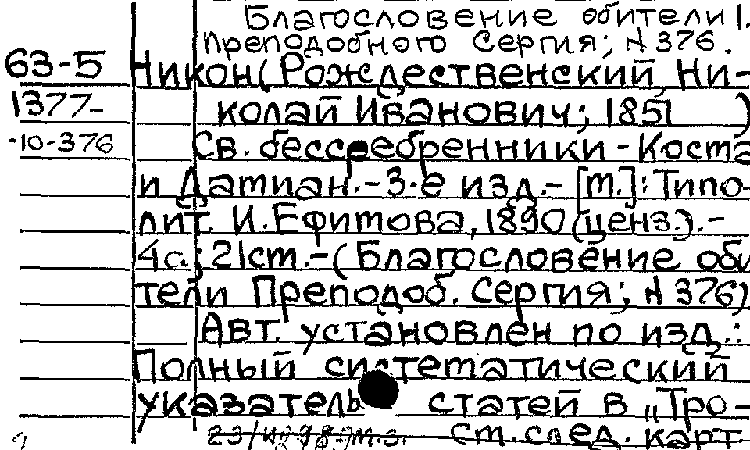 Благословение обители
Преподобного Сергия; N 376.
63-5 Никон (Рождественский, Ни-
1377- колай Иванович; 1851 )
-10-376 Св. бессребренники - Косма
и Дамиан. - 3-е изд. - [М.]: Типо-
лит. И. Ефимова, 1890 (ценз.). -
4 с.; 21 см. - (Благословение оби-
тели Преподоб. Сергия; N 376)
Авт. установлен по изд.:
Полный систематический
указатель статей в „Тро-
См. след. карт